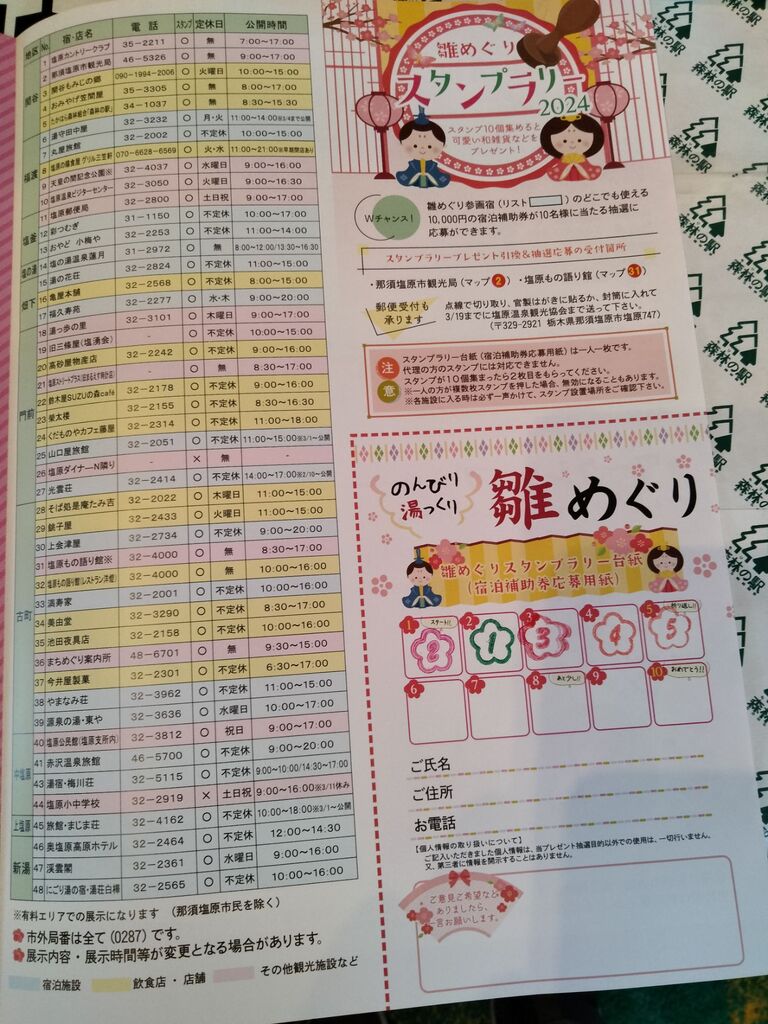 地区 No. 宿・店名 電話 スタンプ 定休日 公開時間
関谷
1 塩原カントリークラブ 35-2211 ○ 無 7:00〜17:00
2 那須塩原市観光局 46-5326 ○ 無 9:00〜17:00
3 関谷もみじの郷 090-1994-2006 ○ 火曜日 10:00〜15:00
4 おみやげ笠間屋 35-3305 ○ 無 8:00〜17:00
5 たかはら森林組合「森林の駅」 34-1037 ○ 無 8:30〜15:30
福渡
6 湯守田中屋 32-3232 ○ 月・火 11:00〜14:00
7 丸屋旅館 32-2002 ○ 不定休 10:00〜15:00
8 070-6628-6569 ○ 火・水 11:00〜21:00
9 天皇の間記念公園※ 32-4037 ○ 水曜日 9:00〜16:00
10 塩原温泉ビジターセンター 32-3050 ○ 火曜日 9:00〜16:30
11 塩原郵便局 32-2800 ○ 土日祝 9:00〜17:00
塩釜
12 彩つむぎ 31-1150 ○ 不定休 10:00〜17:00
13 おやど 小梅や 32-2253 ○ 不定休 11:00〜14:00
塩の湯
14 塩の湯温泉蓮月 31-2972 ○ 無 8:00〜12:00/13:30〜16:30
畑下
15 湯の花荘 32-2824 ○ 不定休 11:00〜15:00
16 亀屋本舗 32-2568 ○ 不定休 8:00〜15:00
17 福久寿苑 32-2277 ○ 水・木 9:00〜20:00
門前
18 湯っ歩の里 32-3101 ○ 木曜日 9:00〜17:00
19 旧三條屋(塩湧会) - ○ 不定休 10:00〜15:00
20 高砂屋物産店 32-2242 ○ 不定休 9:00〜16:00
21 - ○ 無 8:30〜17:00
22 鈴木屋SUZUの森café 32-2178 ○ 不定休 9:00〜16:00
23 榮太楼 32-2155 ○ 不定休 8:30〜16:30
24 くだものやカフェ藤屋 32-2314 ○ 不定休 11:00〜18:00
25 山口屋旅館 32-2051 ○ 不定休 11:00〜15:00※3/1〜公開
26 塩原ダイナーN隣り - × 無 -
27 光雲荘 32-2414 ○ 不定休 14:00〜17:00※2/10〜公開
古町
28 そば処是庵たみ吉 32-2022 ○ 木曜日 11:00〜15:00
29 銚子屋 32-2433 ○ 火曜日 11:00〜15:00
30 上会津屋 32-2734 ○ 不定休 9:00〜20:00
31 塩原もの語り館※ 32-4000 ○ 無 8:30〜17:00
32 塩原もの語り館(レストラン洋燈) 32-4000 ○ 無 10:00〜16:00
33 満寿家 32-2001 ○ 不定休 10:00〜16:00
34 美由堂 32-3290 ○ 不定休 8:30〜17:00
35 池田夜具店 32-2158 ○ 不定休 10:00〜16:00
36 まちめぐり案内所 48-6701 ○ 無 9:30〜15:00
37 今井屋製菓 32-2301 ○ 不定休 6:30〜17:00
38 やまなみ荘 32-3962 ○ 不定休 11:00〜15:00
39 源泉の湯・東や 32-3636 ○ 水曜日 10:00〜17:00
中塩原
40 塩原公民館(塩原支所内) 32-3812 ○ 祝日 9:00〜17:00
41 赤沢温泉旅館 46-5700 ○ 不定休 9:00〜20:00
43 湯宿・梅川荘 32-5115 ○ 不定休 9:00〜10:00/14:30〜17:00
44 塩原小中学校 32-2919 × 土日祝 9:00〜16:00※3/11休み
上塩原
45 旅館・まじま荘 32-4162 ○ 不定休 10:00〜18:00※3/1〜公開
46 奥塩原高原ホテル 32-2464 ○ 不定休 12:00〜14:30
新湯
47 渓雲閣 32-2361 ○ 水曜日 9:00〜16:00
48 にごり湯の宿・湯荘白樺 32-2565 ○ 不定休 10:00〜16:00
※有料エリアでの展示になります (那須塩原市民を除く)
市外局番は全て(0287)です。
展示内容・展示時間等が変更となる場合があります。
宿泊施設 飲食店・店舗 その他観光施設など
雛めぐり
スタンプラリー
2024
スタンプ10個集めると
可愛い和雑貨などを
プレゼント!
Wチャンス!
雛めぐり参画宿(リスト )のどこでも使える
10,000円の宿泊補助券が10名様に当たる抽選に
応募ができます。
スタンプラリープレゼント引換&抽選応募の受付箇所
・那須塩原市観光局(マップ2) ・塩原もの語り館(マップ31)
郵便受付も
承ります
点線で切り取り、官製はがきに貼るか、封筒に入れて
3/19までに塩原温泉観光協会まで送って下さい。
(〒329-2921 栃木県那須塩原市塩原747)
注意
スタンプラリー台紙(宿泊補助券応募用紙)は一人一枚です。
代理の方のスタンプには対応できません。
スタンプが10個集まったら2枚目をもらってください。
※一人の方が複数枚スタンプを押した場合、無効になることもあります。
※各施設に入る時は必ず一声かけて、スタンプ設置場所をご確認下さい。
のんびり
湯っくり
雛めぐり
雛めぐりスタンプラリー台紙
(宿泊補助券応募用紙)
1 スタート!! 2 3 4 5 折り返し!!
2 1 3 4 5
6 7 8 あと少し!! 9 10 おめでとう!!
ご氏名
ご住所
お電話
【個人情報の取り扱いについて】
ご記入いただきました個人情報は、当プレゼント抽選目的以外での使用は、一切行いません。
又、第三者に情報を開示することはありません。
ご意見ご希望など
ありましたら、
一言お願いします。
森林の駅
森林の駅
森林の駅
森林の駅
森林の駅
森林の駅
森林の駅
森林の駅